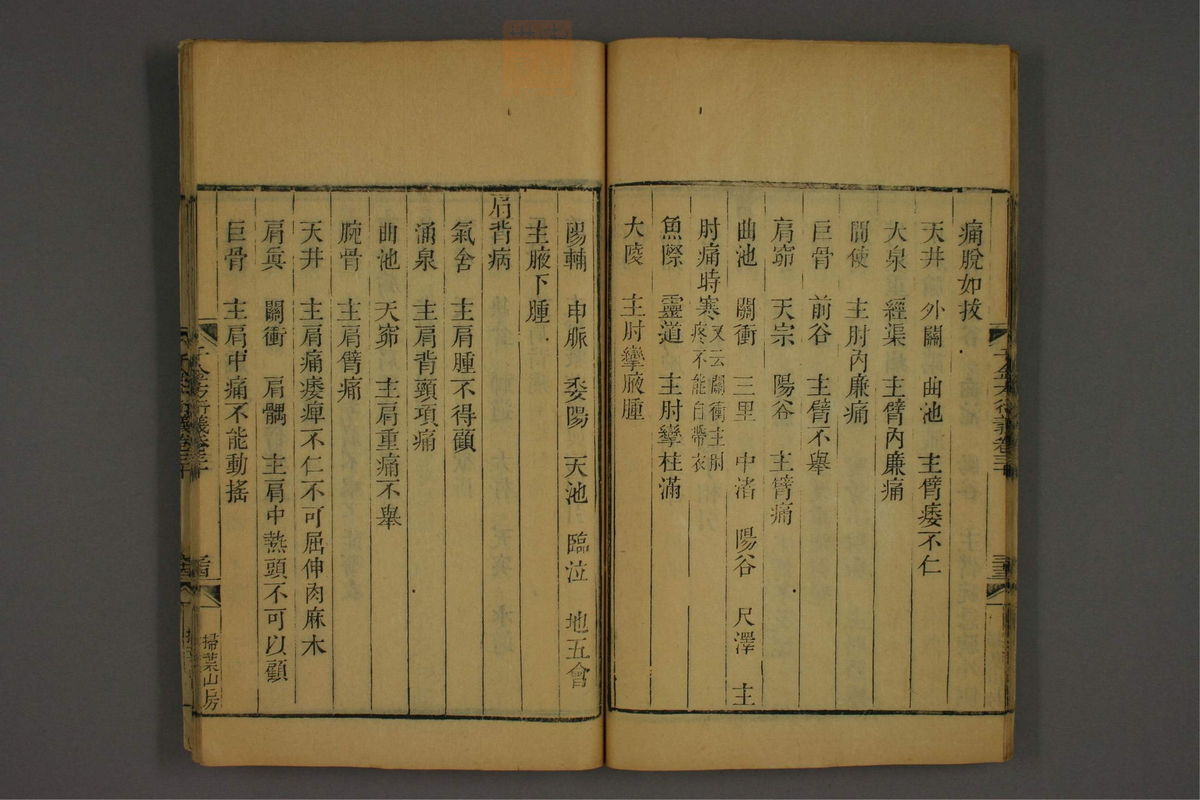 痛脫如拔
天井　外關　曲池　主臂痿不仁
大泉　經渠　主臂內廉痛
間使　主肘內廉痛
巨骨　前谷　主臂不舉
肩窌　天宗　陽谷　主臂痛
曲池　關衝　三里　中渚　陽谷　尺澤　主
肘痛時寒又云關衝主肘疼不能自帶衣
魚際　靈道　主肘攣柱滿
大陵　主肘攣腋腫
陽輔　申脈　委陽　天池　臨泣　地五會
主腋下腫
肩背病
氣舍　主肩腫不得顧
涌泉　主肩背頸項痛
曲池　天窌　主肩重痛不舉
腕骨　主肩臂痛
天井　主肩痛痿痺不仁不可屈伸肉麻木
肩貞　關衝　肩髃　主肩中熱頭不可以顧
巨骨　主肩中痛不能動搖
千金方衍義卷三十
掃葉山房